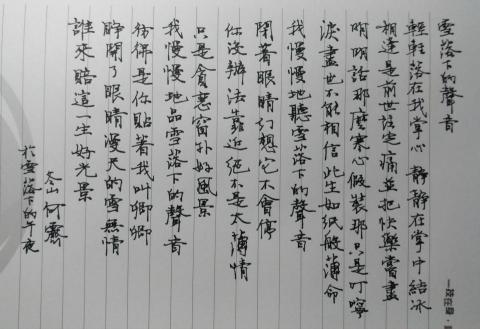 雪落下的聲音
輕輕落在我掌心 靜靜在掌中結冰
相逢是前世註定 痛並把快樂嘗盡
明明話那麼寒心 假裝那只是叮嚀
淚盡也不能相信 此生如紙般薄命
我慢慢地聽 雪落下的聲音
閉著眼睛幻想它不會停
你沒辦法靠近 絕不是太薄情
只是貪戀窗外好風景
我慢慢地品 雪落下的聲音
彷彿是你貼著我叫卿卿
睜開了眼睛 漫天的雪無情
誰來賠這一生好光景
於雪落下的午夜